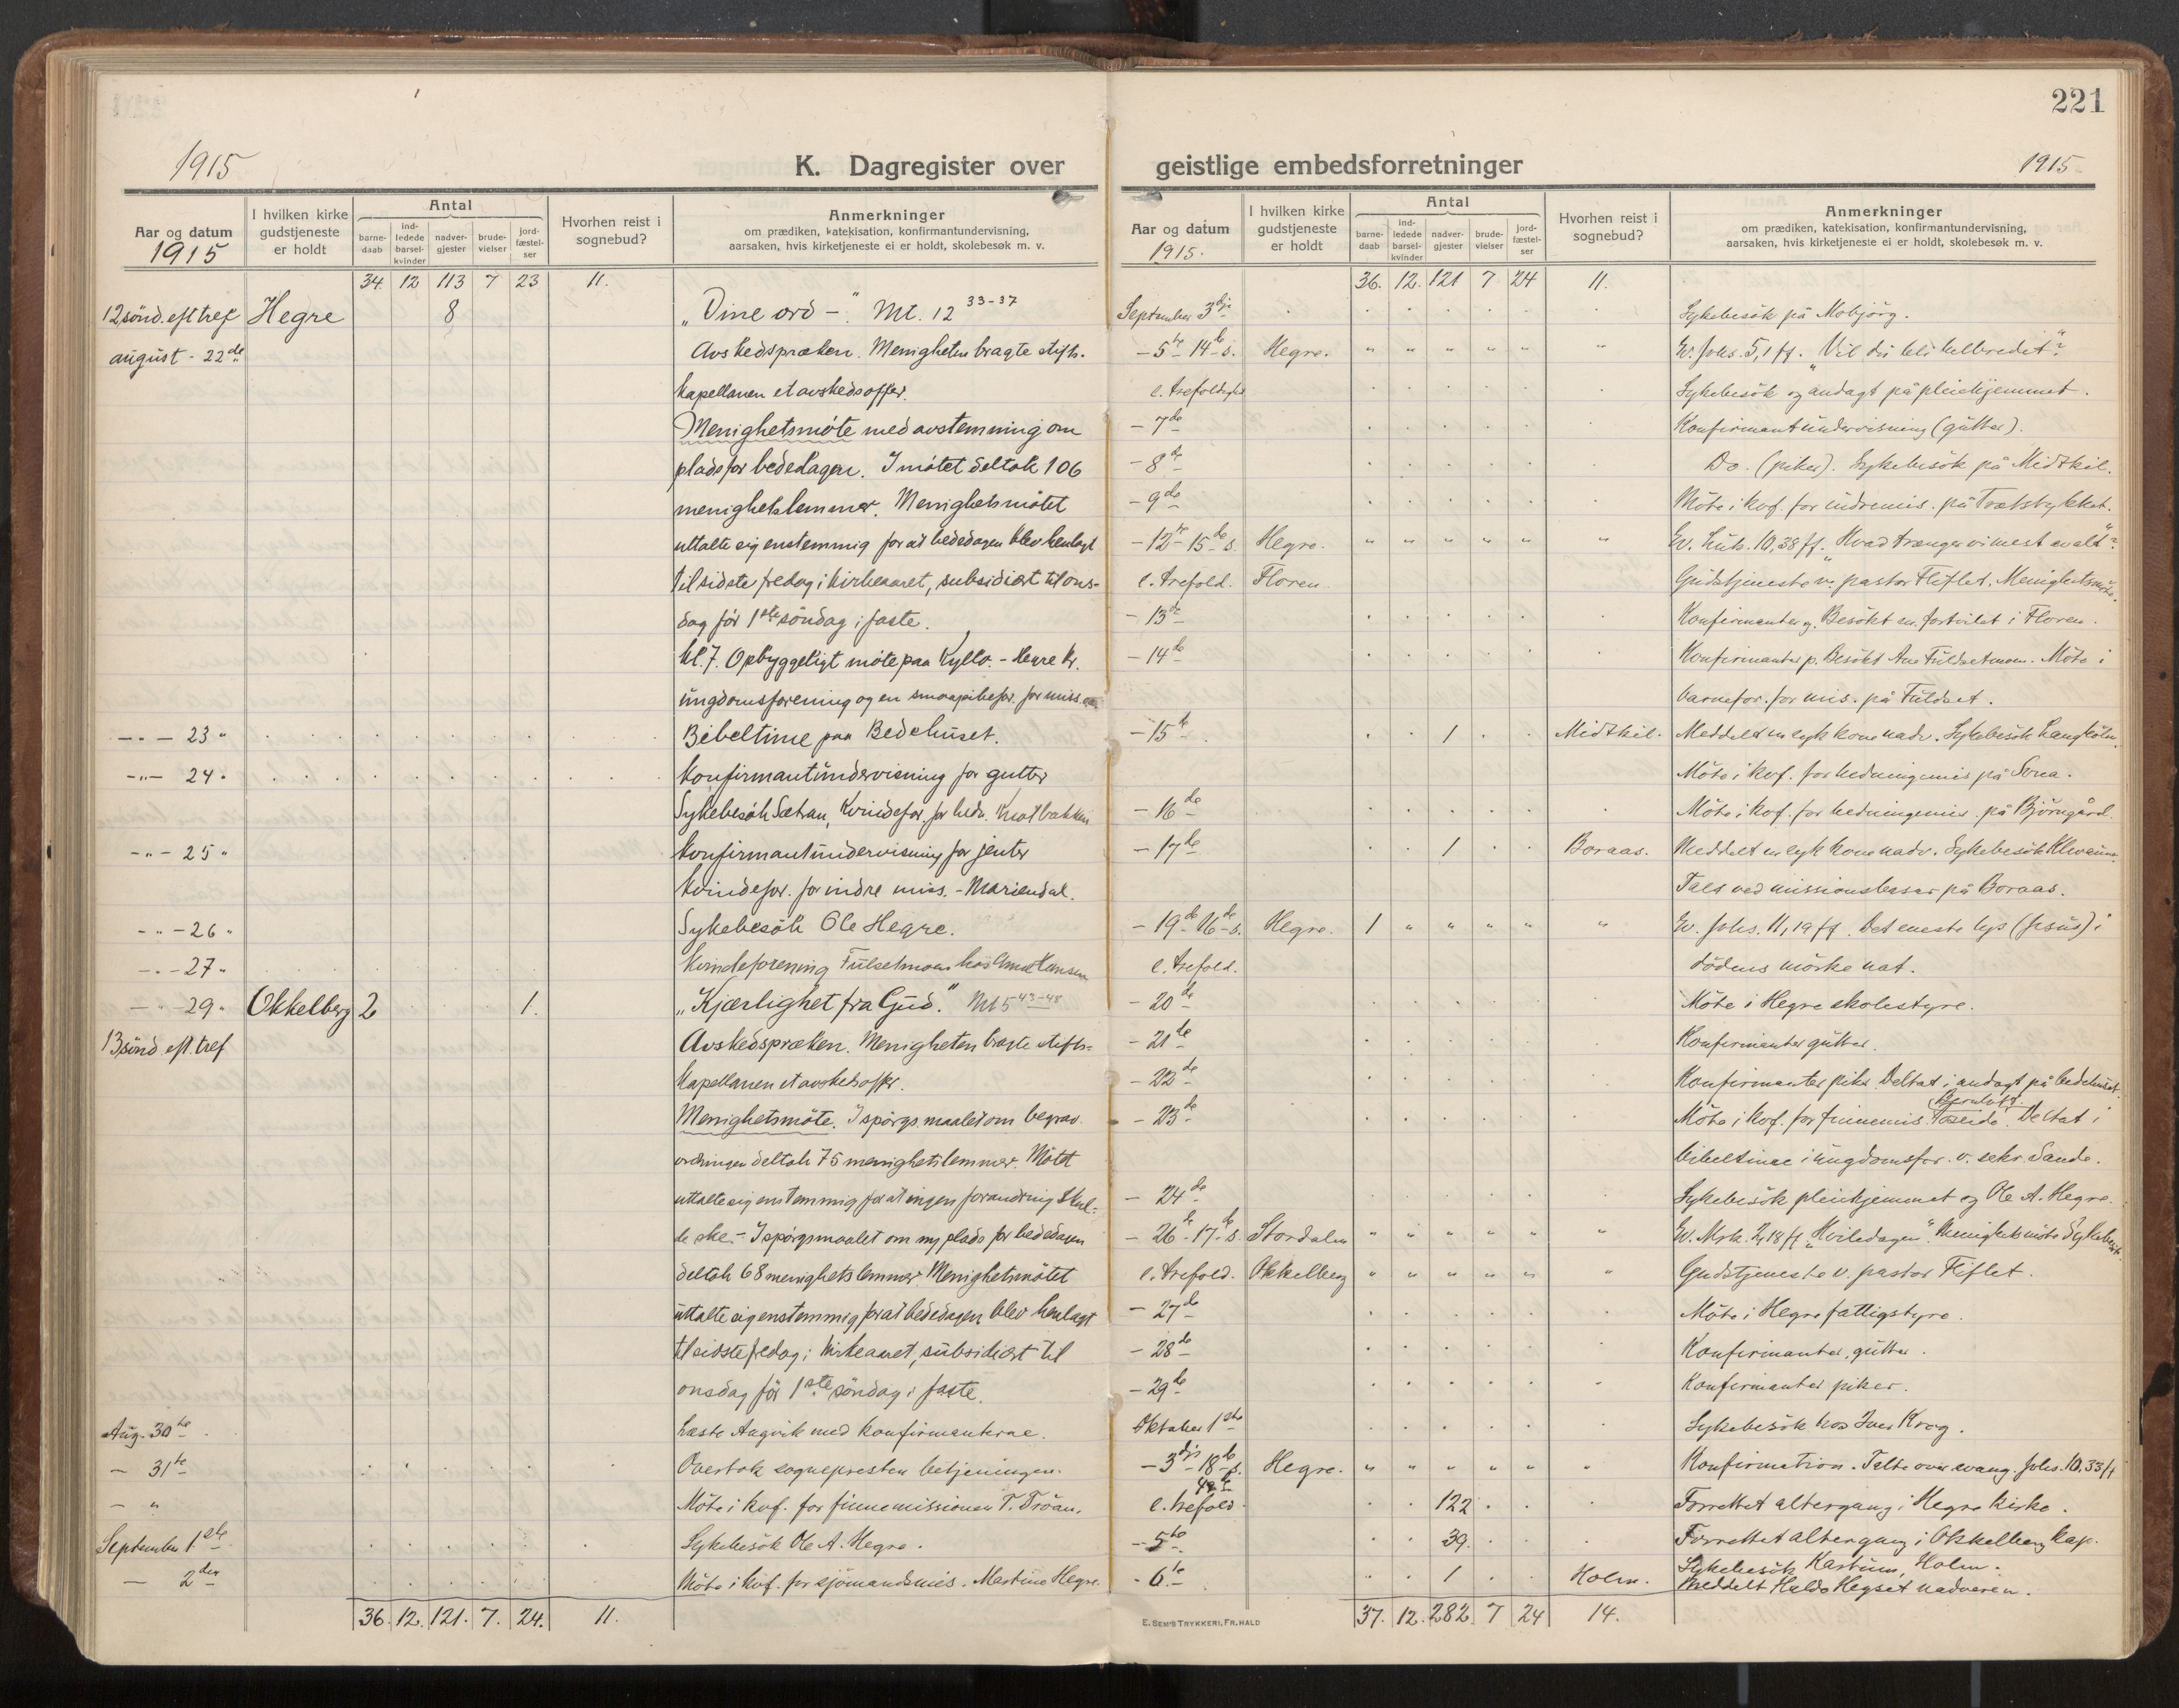 221
1915
K. Dagregister over
geistlige embedsforretninger
1915
Aar og datum
1915
I hvilken kirke gudstjeneste er holdt
Antal
barne-daab
ind-ledede barsel-kvinder
nadver-gjester
brude-vielser
jord-fæstel-ser
Hvorhen reist i sognebud?
Anmerkninger
om prædiken, katekisation, konfirmantundervisning,
aarsaken, hvis kirketjeneste ei er holdt, skolebesøk m. v.
34 12 113 7 23 11.
12 sönd. eft tref Hegre 8 „Dine ord –". Mt. 12 33-37
august - 22de Avskedspræken. Menigheten bragte stifts-
kapellanen et avskedsoffer.
Menighetsmöte med avstemning om
plads for bededagen. I mötet deltok 106
menighetslemmer. Menighetsmötet
uttalte sig enstemmig for at bededagen blev henlagt
til sidste fredag i kirkeaaret, subsidiært til ons-
dag før 1ste söndag i faste.
kl. 7. Opbyggeligt möte paa Kyllo. - Hegre kr.
ungdomsforening og en smaapikefor. for miss.
-"- 23 " Bibeltime paa Bedehuset.
-"- 24 " Konfirmantundervisning for gutter
Sykebesök Sætran, Kvindefor. for hedn.
-"- 25 " Konfirmantundervisning for jenter
Kvindefor. for indre miss. - Mariendal.
-"- 26 " Sykebesök Ole Hegre.
-"- 27 " Kvindeforening Fulsetmoen hos
-"- 29 " Okkelberg 2 1. „Kjærlighet fra Gud." Mt 5 43-48
13 sönd. eft. tref Avskedspræken. Menigheten bragte stifts-
kapellanen et avskedsoffer.
Menighetsmöte. I spørgsmaalet om begrav.
ordningen deltok 75 menighetslemmer. Mötet
uttalte sig enstemmig for at ingen forandring skul-
de ske. - I spørgsmaalet om ny plads for bededagen
deltok 68 menighetslemmer. Menighetsmötet
uttalte sig enstemmig for at bededagen blev henlagt
til sidste fredag i kirkeaaret, subsidiært til
onsdag før 1ste söndag i faste.
Aug. 30te Læste Aagvik med konfirmanterne.
- 31te Overtok sognepresten betjeningen.
- " Möte i kvf. for finnemissionen T. Tröan.
September 1ste Sykebesök Ole A. Hegre.
- 2den Möte i kvf. for sjömandsmis. Martine Hegre.
36. 12. 121. 7. 24. 11.
Aar og datum
1915.
I hvilken kirke gudstjeneste er holdt
Antal
barne-daab
ind-ledede barsel-kvinder
nadver-gjester
brude-vielser
jord-fæstel-ser
Hvorhen reist i sognebud?
Anmerkninger
om prædiken, katekisation, konfirmantundervisning,
aarsaken, hvis kirketjeneste ei er holdt, skolebesøk m. v.
36. 12. 121 7 24 11.
September 3dje Sykebesök på Mobjörg.
- 5te 14-s. Hegre. " " " " " " Ev. Johs. 5,1 ff. „Vil du bli helbredet?"
e. trefoldighet Sykebesök og andagt på pleiehjemmet.
- 7de Konfirmantundervisning (gutter).
- 8de Do. (piker). Sykebesök på Midtkil.
- 9de Möte i kvf. for indremis. på Trætstykket.
- 12te 15de s. Hegre. " " " " " " Ev. Luk. 10,38 ff. „Hvad trænger vi mest av alt?"
e. trefold. Floren. Gudstjeneste v. pastor Fliflet. Menighetsmöte.
- 13de Konfirmanter g. Besökt en fortvilet i Floren.
- 14de Konfirmanter p. Besökt Ane Fuldsetmoen. Möte i
barnefor. for mis. på Fuldset.
- 15de 1 Midtkil. Meddelt en syk kone nadv. Sykebesök
Möte i kvf. for hedningemis på Sona.
- 16de Möte i kvf. for hedningemis. på Björngård.
- 17de 1 Boraas. Meddelt en syk kone nadv. Sykebesök
Tale ved missionsbasar på Boraas.
- 19de 16de s. Hegre. 1 " " " " " Ev. Johs. 11,19 ff. Det eneste lys (Jesus) i
e. trefold. dödens mörke nat.
- 20de Möte i Hegre skolestyre.
- 21de Konfirmanter gutter.
- 22de Konfirmanter piker. Deltat i andagt på bedehuset.
- 23de Möte i kvf. for finnemis. Deltat i
bibeltime i ungdomsfor. v. sekr. Sande.
- 24de Sykebesök pleiehjemmet og Ole A. Hegre.
- 26de 17de s. Stordalen " " " " " " Ev. Mrk. 2,18 ff. „Hviledagen". Menighetsmöte Sykebesök.
e. trefold. Okkelberg " " " " " " Gudstjeneste v. pastor Fiflet.
- 27de Möte i Hegre fattigstyre.
- 28de Konfirmanter, gutter.
- 29de Konfirmanter piker.
Oktober 1ste Sykebesök hos Iver Krog.
- 3dje 18de s. Hegre. " " " " " " Konfirmation. Talte over evang. Johs. 10,33 ff
4de
e. trefold. 122 Forrettet altergang i Hegre kirke.
- 5te 39. Forrettet altergang i Okkelberg kap.
- 6te 1 Holm. Sykebesök Kartum, Holm.
Meddelt Huldo Hegset nadveren.
E. SEM'S TRYKKERI, FR.HALD
37. 12. 282. 7 24 14.